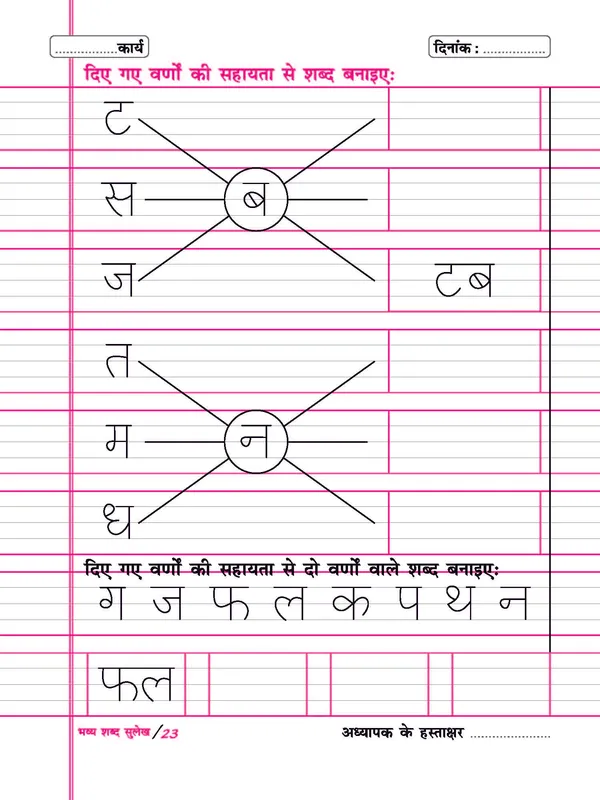 .................कार्य दिनांक : .................
दिए गए वर्णों की सहायता से शब्द बनाइए:
ट
स ब
ज टब
त
म न
ध
दिए गए वर्णों की सहायता से दो वर्णों वाले शब्द बनाइए:
ग ज फ ल क प थ न
फल
भव्य शब्द सुलेख/23 अध्यापक के हस्ताक्षर ......................